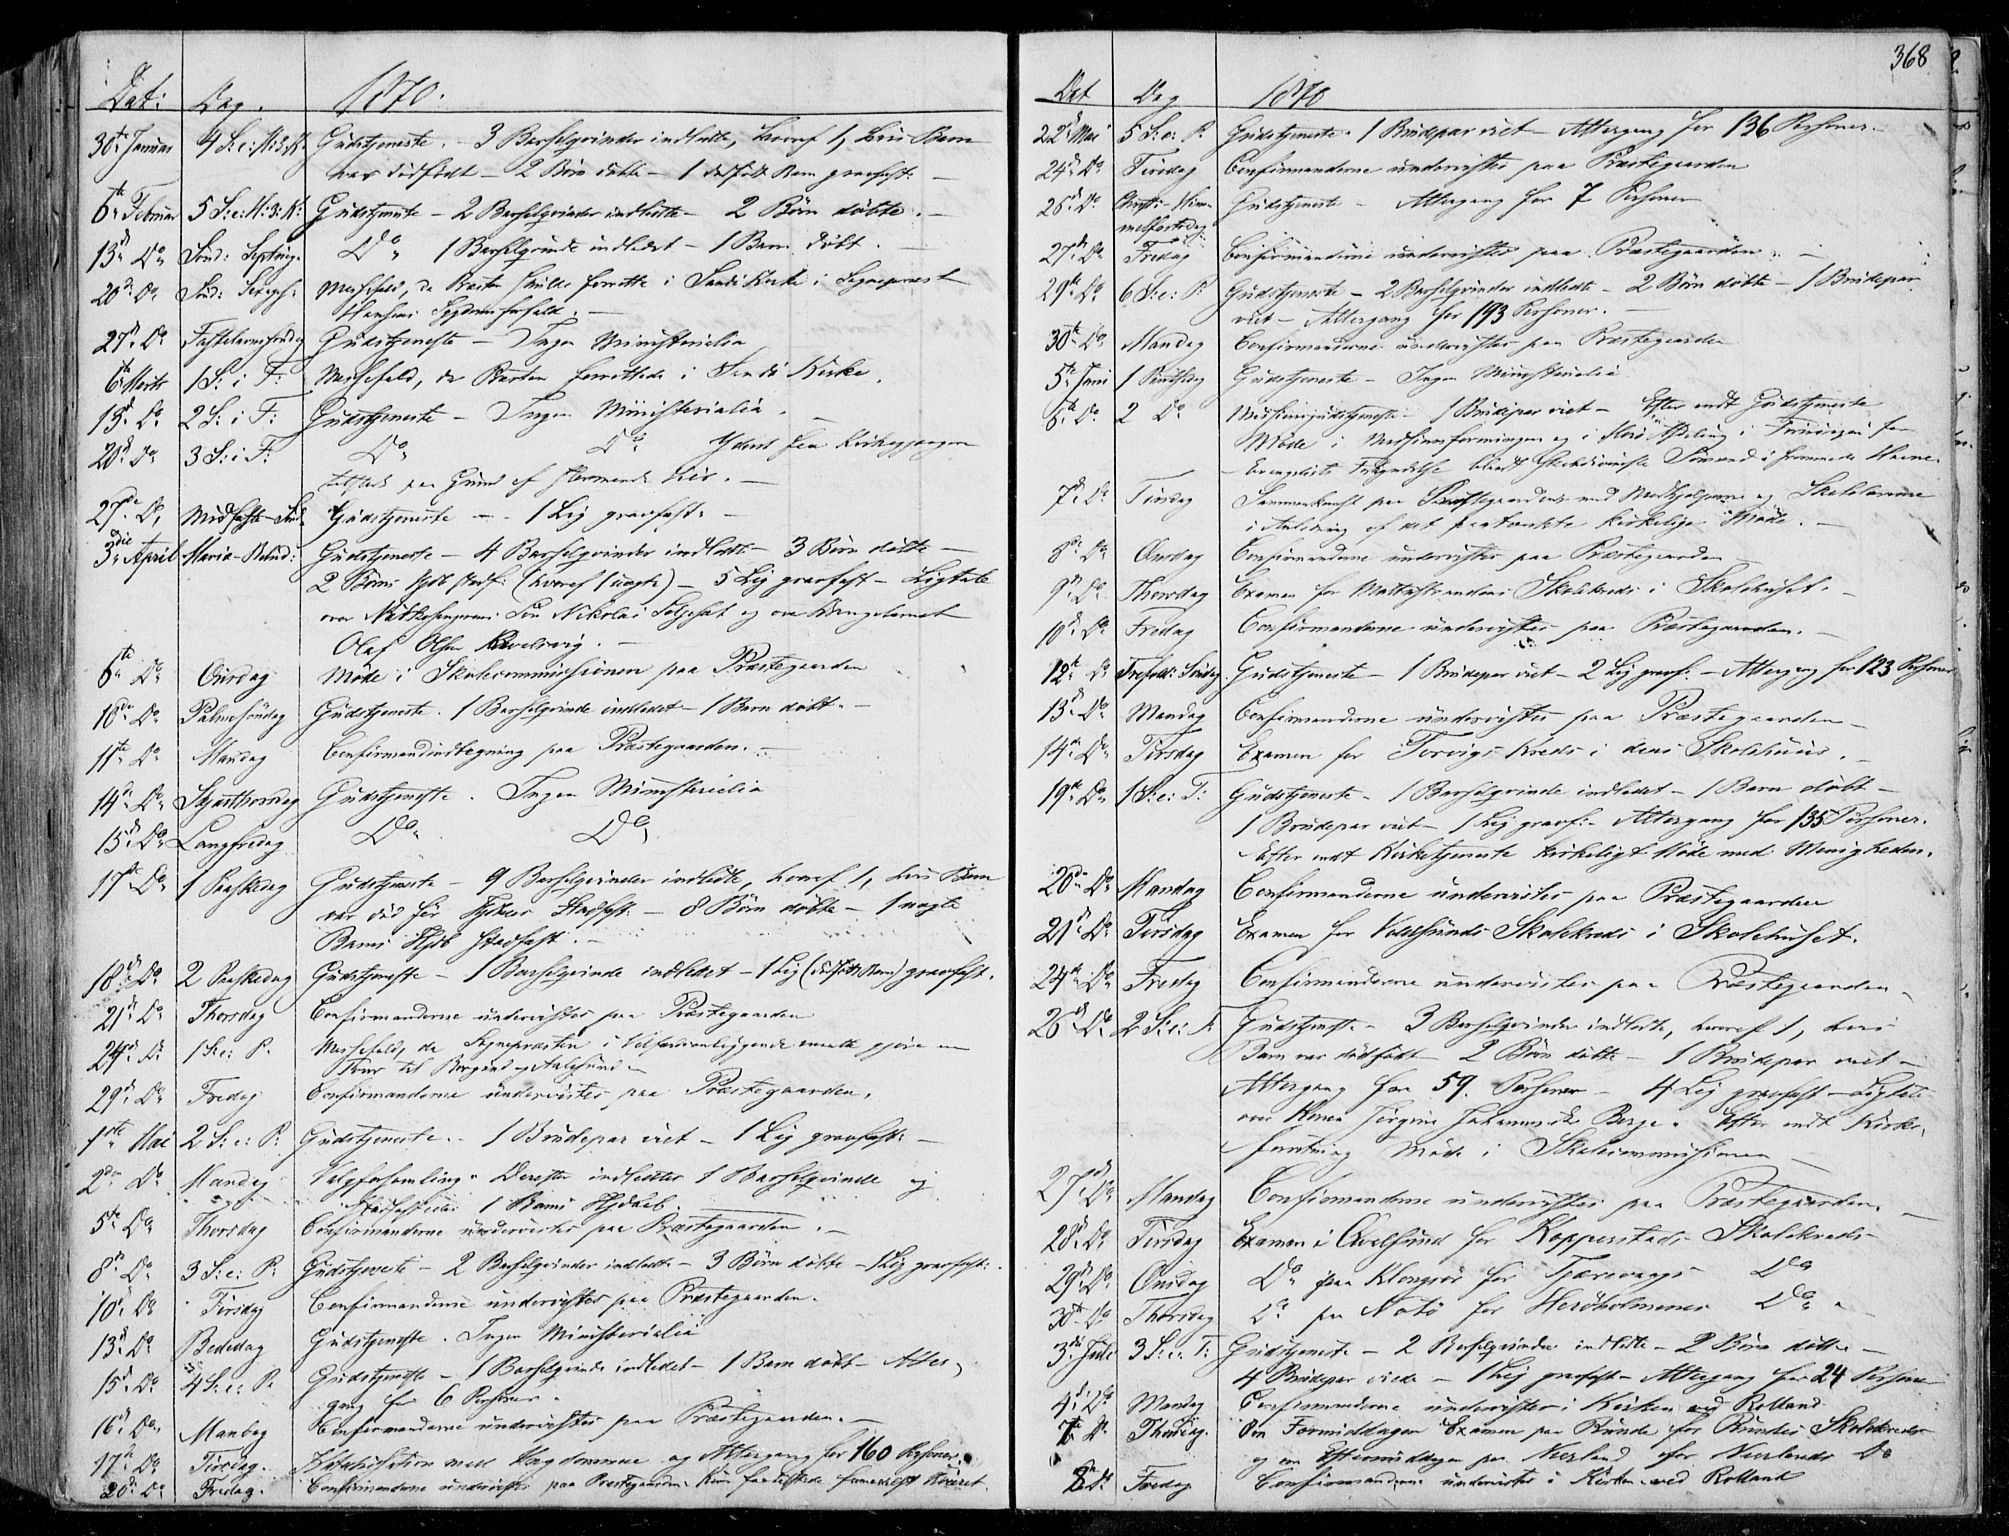 Dat: Dag. 1870.
30te Januar 4 S: e: H: 3 K: Gudstjeneste. - 3 Barselqvinder indledte, hvoraf 1, hvis Barn
var dødfødt - 2 Børn døbte - 1 dødfødt Barn gravfast: -
6te Februar 5 S: e: H: 3: K: Gudstjeneste - 2 Barselqvinder indledte - 2 Børn døbte. -
13de Do Sønd: Septuag: Do 1 Barselqvinde indledet - 1 Barn døbt. -
20de Do Sønd: Sexages: Messefald, da Præsten skulde forrette i Sandø Kirke i Sognepræst
Hansens Sygdomsforfald. -
27de Do Fastelavnssøndag Gudstjeneste - Ingen Ministerialia
6te Marts 1 S: i F: Messefald, da Præsten forrettede i Sandø Kirke.
13de Do 2 S: i F: Gudstjeneste - Ingen Ministerialia. -
20de Do 3 S: i F: Do Do
paa Grund af
27de Do Midfaste-Sønd: Gudstjeneste - 1 Lig gravfast: -
3die April Mariæ-Bebud: Gudstjeneste - 4 Barselqvinder indledte - 3 Børn døbte -
2 Børns Hjdb. stadf: (hvoraf 1 uægte) - 5 Lig gravfast - Ligtale
over Søn Nikolai og over
Olaf Olsen -
6te Do Onsdag Møde i Skolecommissionen paa Præstegaarden
10de Do Palmesøndag Gudstjeneste. 1 Barselqvinde indledet - 1 Barn døbt. -
11te Do Mandag Confirmandindtegning paa Præstegaarden. -
14de Do Skjærthorsdag Gudstjeneste. Ingen Ministerialia
15de Do Langfredag Do Do
17de Do 1 Paaskedag Gudstjeneste - 9 Barselqvinder indledte, hvoraf 1, hvis Barn
var død før Stadfast: - 8 Børn døbte - 1 uægte
Barns Hjdb stadfast. -
18de Do 2 Paaskedag Gudstjeneste - 1 Barselqvinde indledet - 1 Lig (dødfødt Barn) gravfast.
21de Do Thorsdag Confirmanderne undervistes paa Præstegaarden
24de Do 1 S: e: P. Messefald, da Sognepræsten i gjøre en
Tour til Borgund og Aalesund -
29de Do Fredag Confirmanderne undervistes paa Præstegaarden.
1ste Mai 2 S: e: P: Gudstjeneste. - 1 Brudepar viet - 1 Lig gravfast: -
2den Do Mandag Valgforsamling. Derefter indledet 1 Barselqvinde og
stadfæstedes 1 Barns Hjdaab.
5te Do Thorsdag Confirmanderne undervistes paa Præstegaarden. -
8de Do 3 S: e: P: Gudstjeneste - 2 Barselqvinder indledte - 3 Børn døbte - 1 Lig gravfast: .
10de Do Tirsdag Confirmanderne undervistes paa Præstegaarden.
13de Do Bededag Gudstjeneste. Ingen Ministerialia
15de Do 4 S: e: P: Gudstjeneste - 1 Barselqvinde indledet - 1 Barn døbt - Alter-
gang for 6 Personer.
16de Do Mandag Confirmanderne undervistes paa Præstegaarden. -
17de Do Tirsdag. Katekisation med Ungdommen og Altergang for 160 Personer.
20de Do Fredag. Confirmanderne undervistes paa Præstegaarden.
368
Dat Dag 1870
22de Mai 5 S: e: P: Gudstjeneste. 1 Brudepar viet - Altergang for 136 Personer. -
24de Do Tirsdag Confirmanderne undervistes paa Præstegaarden
26de Do Christi-Him- Gudstjeneste - Altergang for 7 Personer
melfartsdag
27de Do Fredag Confirmanderne undervistes paa Præstegaarden. -
29de Do 6 S: e: P: Gudstjeneste - 2 Barselqvinder indledte - 2 Børn døbte - 1 Brudepar
viet - Altergang for 193 Personer. -
30te Do Mandag Confirmanderne undervistes paa Præstegaarden
5te Juni 1 Pintsedag Gudstjeneste - Ingen Ministerialia
6te Do 2 Do Missionsgudstjeneste - 1 Brudepar viet - Efter endt Gudstjeneste
Møde i Missionsforeningen og i Herø Afdeling i Foreningen for
Evangeliets Forkyndelse blandt Skandinaviske Sømænd i fremmede Havne.
7de Do Tirsdag Sammenkomst paa Præstegaarden med Medhjælperne og Skolelærerne
i Anledning af det paatænkte kirkelige Møde. -
8de Do Onsdag Confirmanderne undervistes paa Præstegaarden
9de Do Thorsdag Examen for Skolekreds i Skolehuset. -
10de Do Fredag Confirmanderne undervistes paa Præstegaarden. -
12te Do Trefold: Søndag Gudstjeneste - 1 Brudepar viet - 2 Lig gravf: - Altergang for 123 Personer
13de Do Mandag Confirmanderne undervistes paa Præstegaarden -
14de Do Tirsdag Examen for Torvigs Kreds i dens Skolehuus. -
19de Do 1 S: e: T: Gudstjeneste - 1 Barselqvinde indledet - 1 Barn døbt -
1 Brudepar viet - 1 Lig gravf: - Altergang for 135 Personer.
Efter endt Kirketjeneste kirkeligt Møde med Menigheden.
20de Do Mandag Confirmanderne undervistes paa Præstegaarden
21de Do Tirsdag Examen for Skolekreds i Skolehuset.
24de Do Fredag Confirmanderne undervistes paa Præstegaarden -
26de Do 2 S: e: T: Gudstjeneste - 3 Barselqvinder indledte, hvoraf 1, hvis
Barn var dødfødt - 2 Børn døbte - 1 Brudepar viet -
Altergang for 59. Personer - 4 Lig gravfast - Ligtale
over Konen Jørgine Berge. Efter endt Kirke-
forretning Møde i Skolecommissionen -
27de Do Mandag Confirmanderne undervistes paa Præstegaarden. -
28de Do Tirsdag Examen i for Koppenstads Skolekreds -
29de Do Onsdag Do paa for Tjørevaags Do
30te Do Thorsdag Do paa Notø for Herøholmenes Do
3die Juli 3 S: e: T: Gudstjeneste - 2 Barselqvinder indledte - 2 Børn døbte -
4 Brudepar viede - 1 Lig gravfast - Altergang for 24 Personer
4de Do Mandag Confirmanderne undervistes i Kirken ved Rolland
7de Do Thorsdag. Om Formiddagen Examen paa Runde for Rundes Skolekreds
og om Eftermiddagen paa Nerland for Nerlands Do
8de Do Fredag Confirmanderne undervistes i Kirken ved Rolland